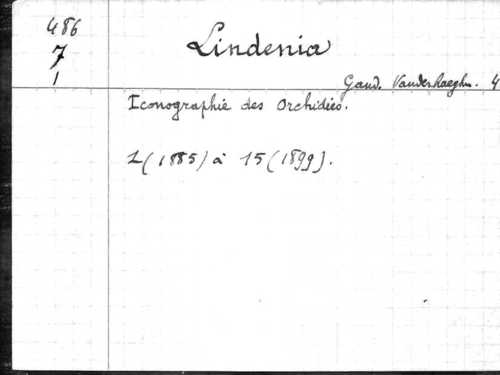 486
7
1
Lindenia
Gand. Vanderhaeghn. 4
Iconographie des Orchidées.
1 (1885) à 15 (1899).